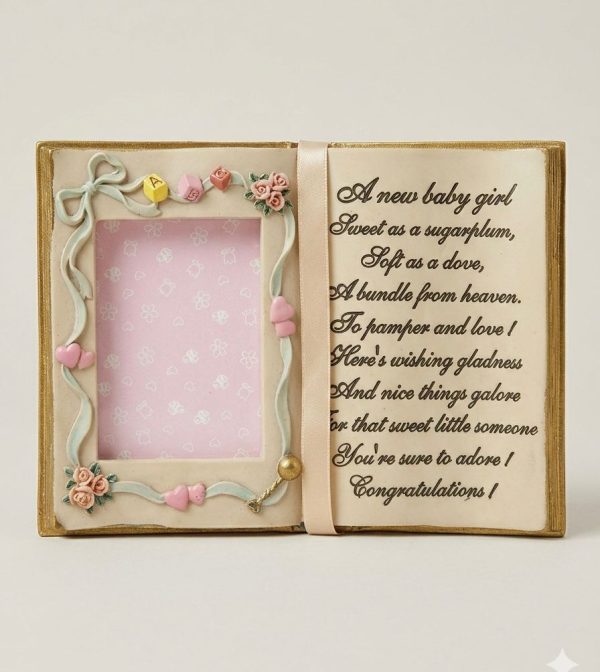 A
A new baby girl
Sweet as a sugarplum,
Soft as a dove,
A bundle from heaven.
To pamper and love!
Here's wishing gladness
And nice things galore
For that sweet little someone
You're sure to adore!
Congratulations!